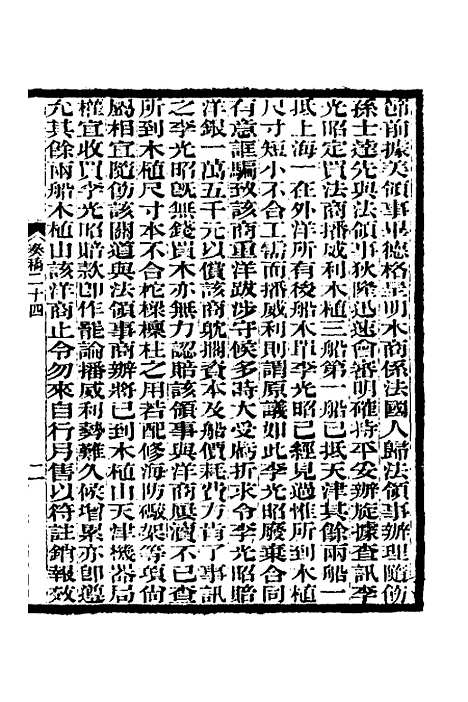 節前據美領事畢德格呈明木商係法國人歸法領事辦理隨飭
孫士達先與法領事狄隆迅速會審明確持平妥辦旋據查訊李
光昭定買法商播威利木植三船第一船已抵天津其餘兩船一
抵上海一在外洋所有後船木單李光昭已經見過惟所到木植
尺寸短小不合工需而播威利則謂原議如此李光昭廢棄合同
有意誆騙致該商重洋跋涉守候多時大受虧折求令李光昭賠
洋銀一萬五千元以償該商耽擱資本及船價耗費方肯了事訊
之李光昭既無錢買木亦無力認賠該領事與洋商屢瀆不已查
所到木植尺寸本不合柁樑檁柱之用若配修海防礮架等項尚
屬相宜隨飭該關道與法領事商辦將已到木植山天津機器局
權宜收買李光昭賠款即作罷論播威利勢難久候增累亦即遵
允其餘兩船木植山該洋商止令勿來自行另售以符註銷報效
奏稿二十四
二